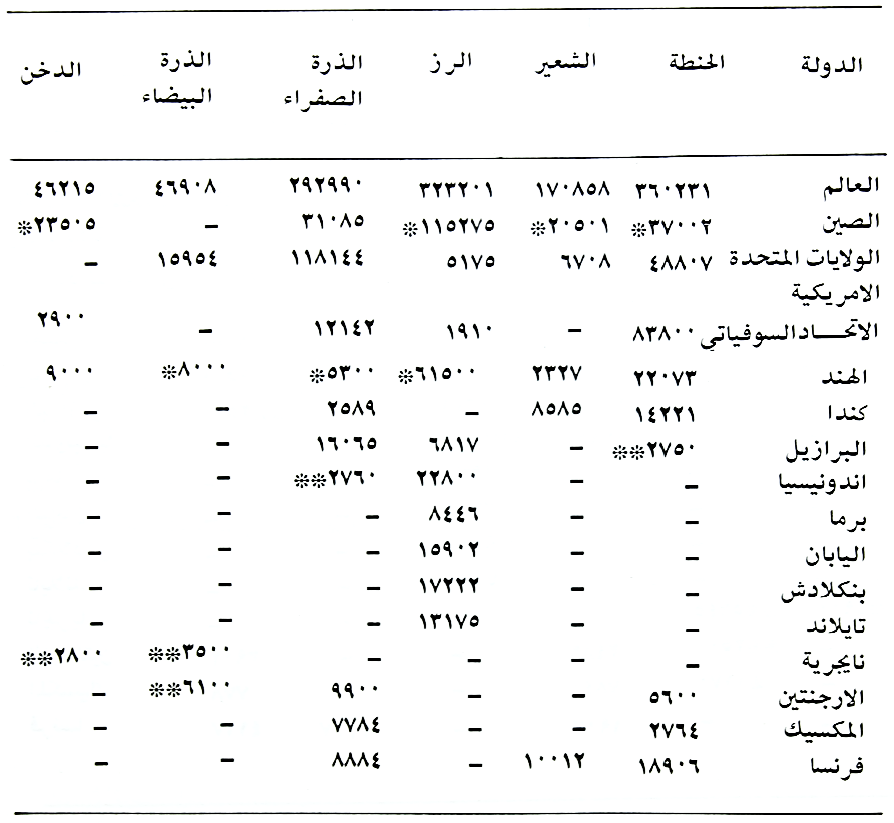 الدولة الحنطة الشعير الرز الذرة الصفراء الذرة البيضاء الدخن
العالم ٣٦٠٢٣١ ١٧٠٨٥٨ ٣٢٣٢٠١ ٢٩٢٩٩٠ ٤٦٩٠٨ ٤٦٢١٥
الصين ٣٧٠٠٢* ٢٠٥٠١* ١١٥٢٧٥* ٣١٠٨٥ – ٢٣٥٠٥*
الولايات المتحدة ٤٨٨٠٧ ٦٧٠٨ ٥١٧٥ ١١٨١٤٤ ١٥٩٥٤ –
الامريكية
الاتحـــادالسوفياتي ٨٣٨٠٠ – ١٩١٠ ١٢١٤٢ – ٢٩٠٠
الهند ٢٢٠٧٣ ٢٣٢٧ ٦١٥٠٠* ٥٣٠٠* ٨٠٠٠* ٩٠٠٠
كندا ١٤٢٢١ ٨٥٨٥ – ٢٥٨٩ – –
البرازيل ٢٧٥٠** – ٦٨١٧ ١٦٠٦٥ – –
اندونيسيا – – ٢٢٨٠٠ ٢٧٦٠** – –
برما – – ٨٤٤٦ – – –
اليابان – – ١٥٩٠٢ – – –
بنكلادش – – ١٧٢٢٢ – – –
تايلاند – – ١٣١٧٥ – – –
نايجرية – – – – ٣٥٠٠** ٢٨٠٠**
الارجنتين ٥٦٠٠ – – ٩٩٠٠ ٦١٠٠** –
المكسيك ٢٧٦٤ – – ٧٧٨٤ – –
فرنسا ١٨٩٠٦ ١٠٠١٢ – ٨٨٨٤ – –